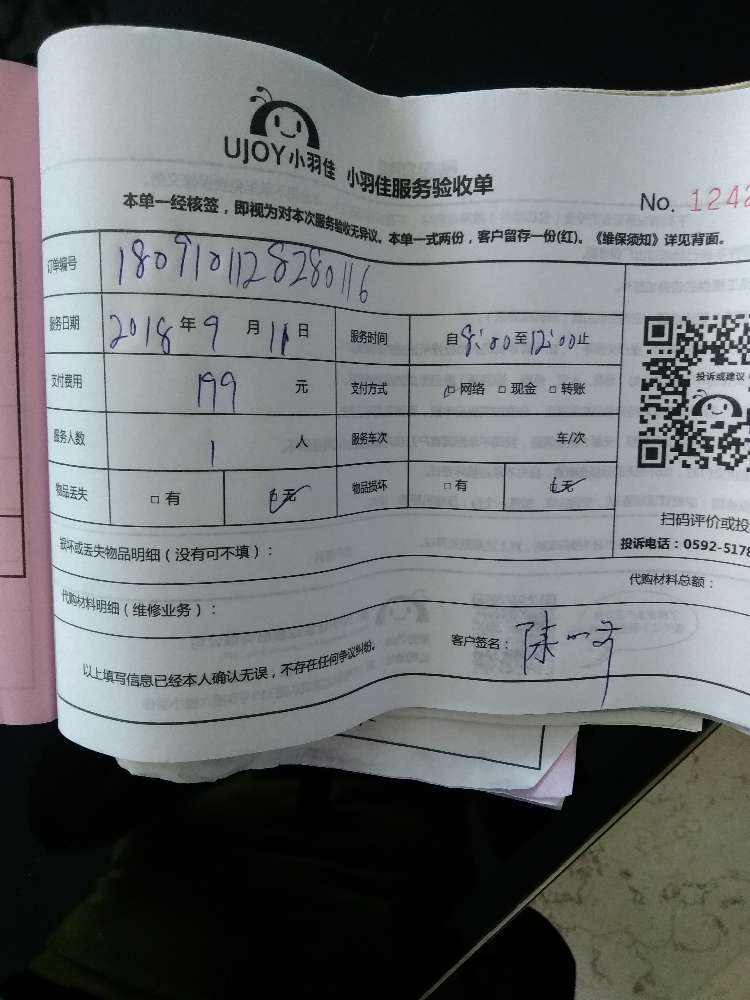 UJOY小羽佳 小羽佳服务验收单
No. 1242
本单一经核签，即视为对本次服务验收无异议。本单一式两份，客户留存一份(红)。《维保须知》详见背面。
订单编号 1809101128280116
服务日期 2018年9月11日 服务时间 自8:00至12:00止
支付费用 199 元 支付方式 □网络 □现金 □转账
服务人数 1 人 服务车次 车/次
物品丢失 □有 □无 物品损坏 □有 □无
投诉或建议
扫码评价或投
投诉电话：0592-5178
损坏或丢失物品明细（没有可不填）：
代购材料明细（维修业务）： 代购材料总额：
以上填写信息已经本人确认无误，不存在任何争议纠纷。 客户签名：